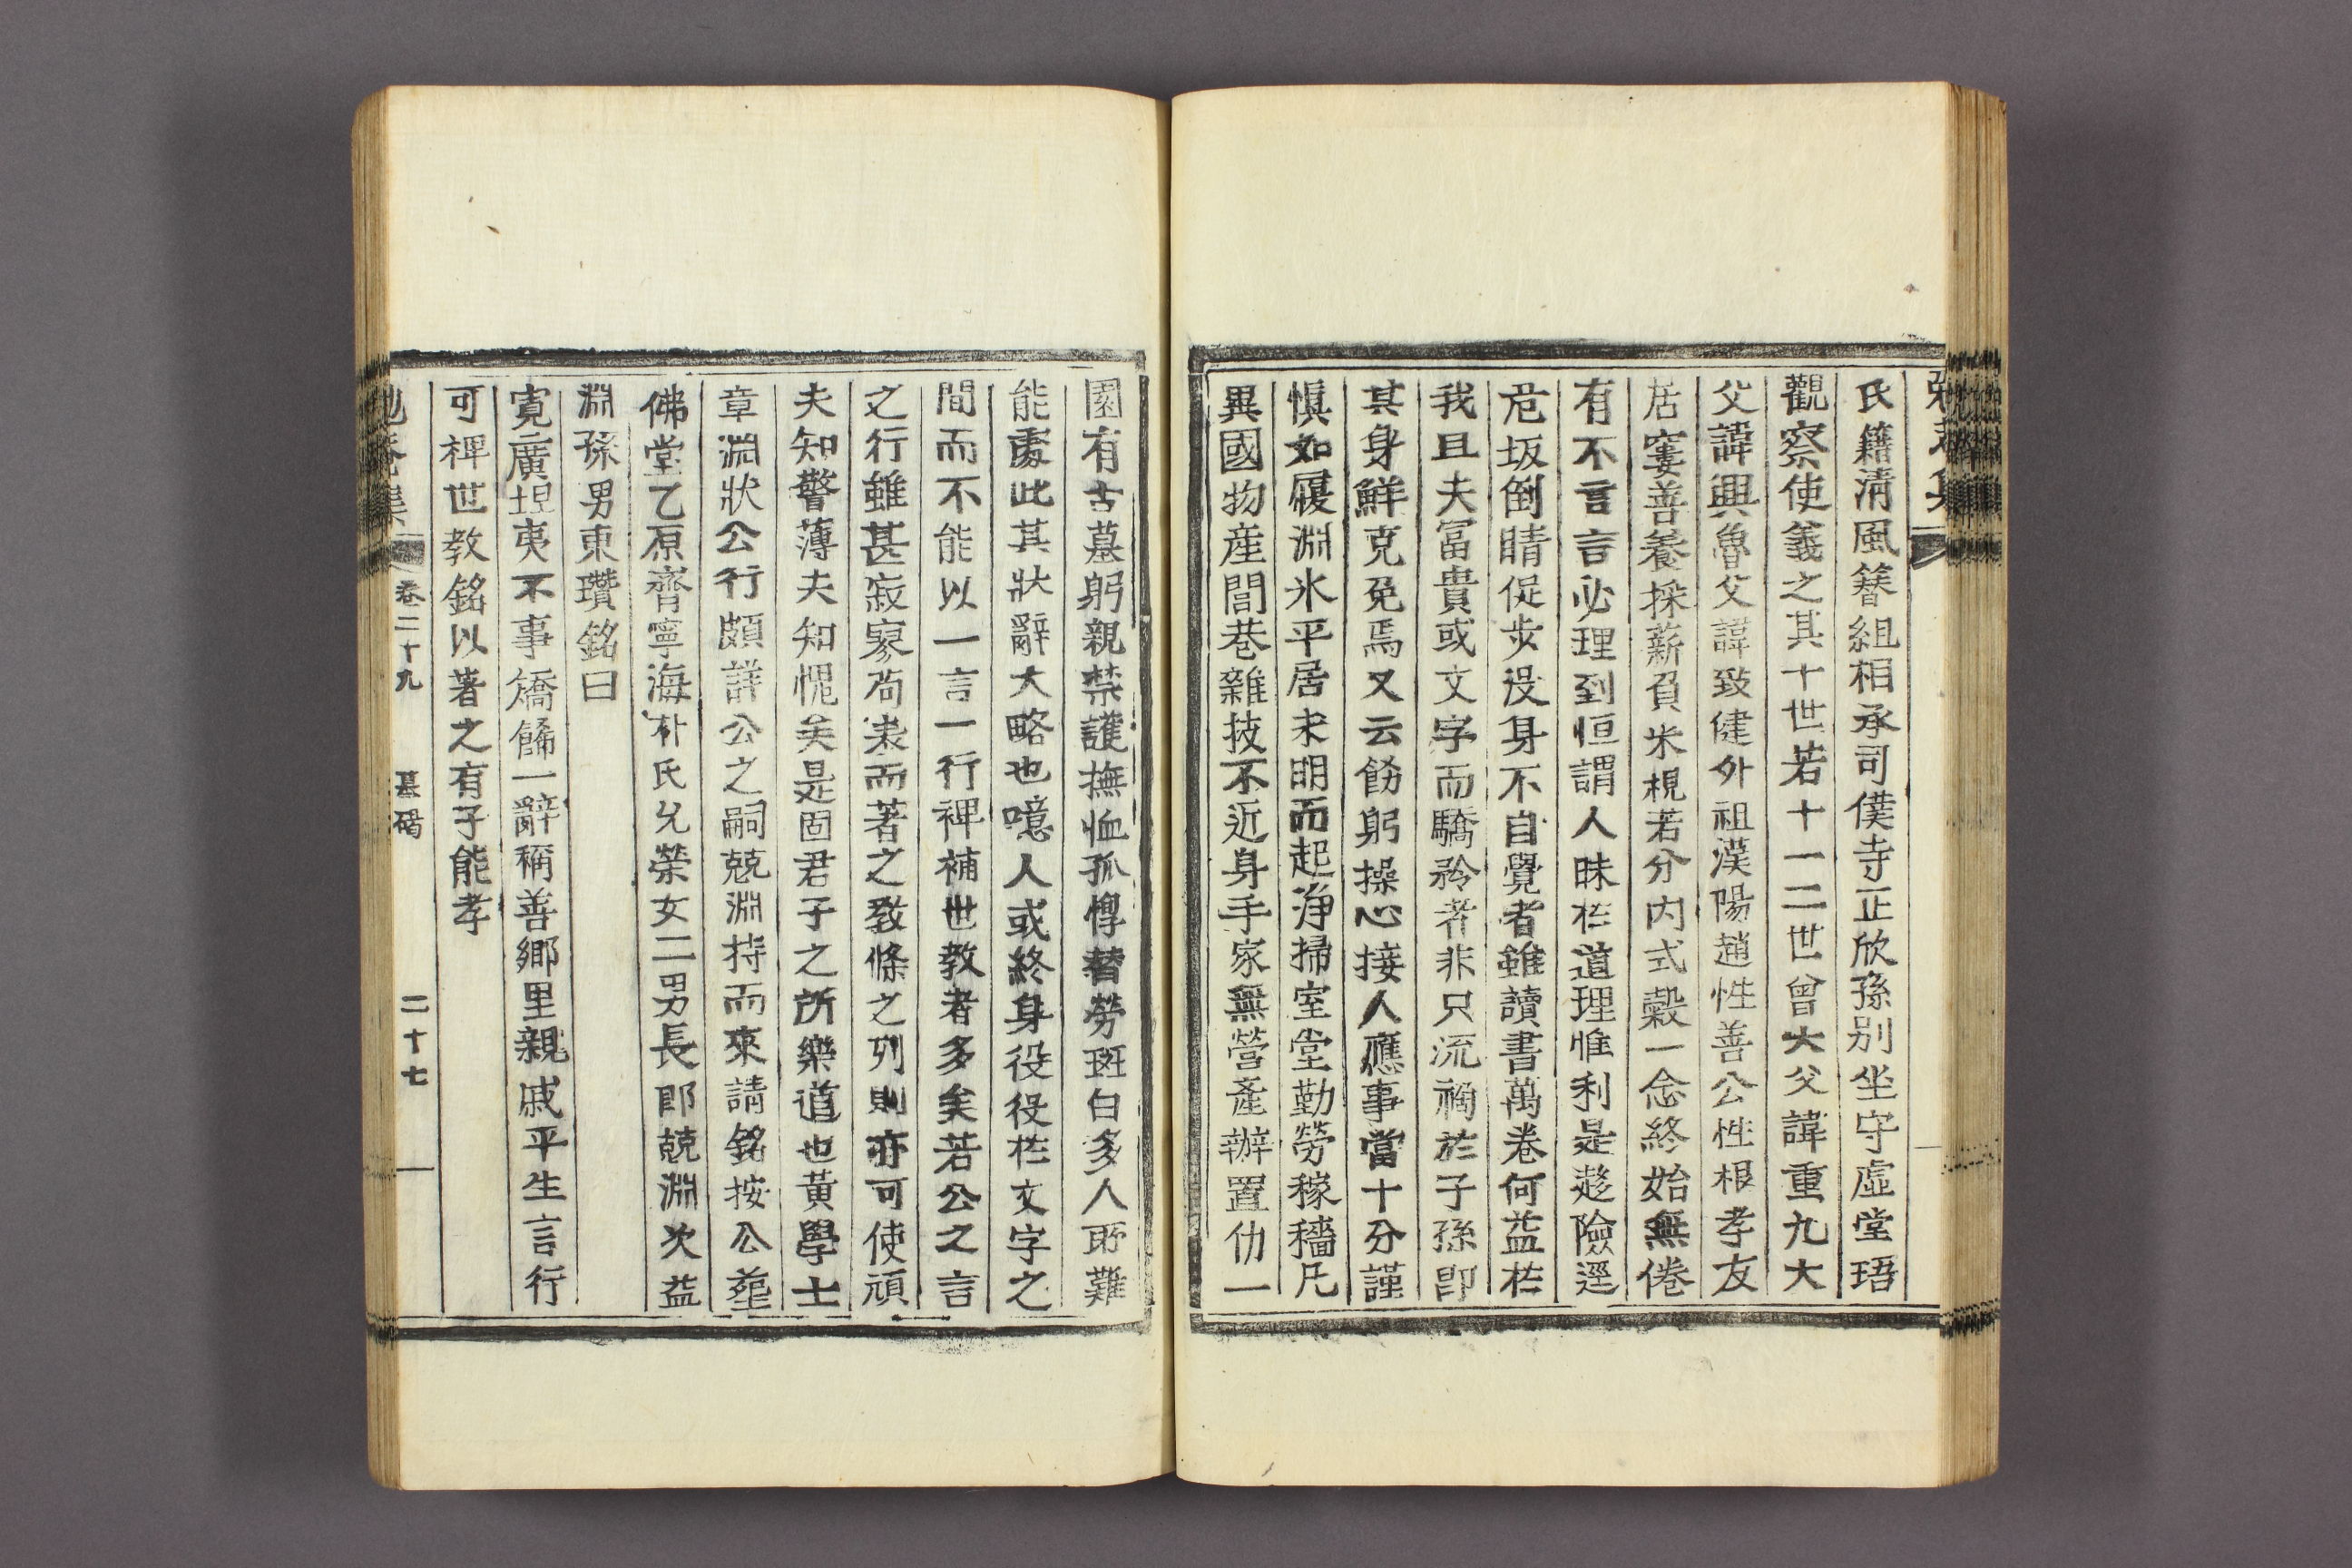 氏籍淸風簪組相承司僕寺正欣孫别坐守虛堂珸
觀察使義之其十世若十一二世曾大父諱重九大
父諱興魯父諱致健外祖漢陽趙性善公性根孝友
居窶善養採薪負米視若分内式穀一念終始無倦
有不言言必理到恒謂人昧於道理惟利是趍險逕
危坂倒睛促步沒身不自覺者雖讀書萬卷何益於
我且夫冨貴或文字而驕矜者非只流禍於子孫卽
其身鮮克免焉又云飭躬操心接人應事當十分謹
愼如履淵氷平居未明而起淨掃室堂勤勞稼穡凡
異國物産閭巷雜技不近身手家無營產辦置仂一
園有古墓躬親禁護撫恤孤惸替勞斑白多人所難
能處此其狀辭大略也噫人或終身役役於文字之
間而不能以一言一行裨補世教者多矣若公之言
之行雖甚寂寥苟表而著之敎條之列則亦可使頑
夫知警薄夫知愧矣是固君子之所樂道也黃學士
章淵狀公行頗詳公之嗣兢淵持而來請銘按公塟
佛堂乙原齊寧海朴氏允榮女二男長卽兢淵次益
淵孫男東瓚銘曰
寬廣坦夷不事矯餙一辭稱善鄕里親戚平生言行
可裨世教銘以著之有子能孝
卷二十九 墓碣 二十七